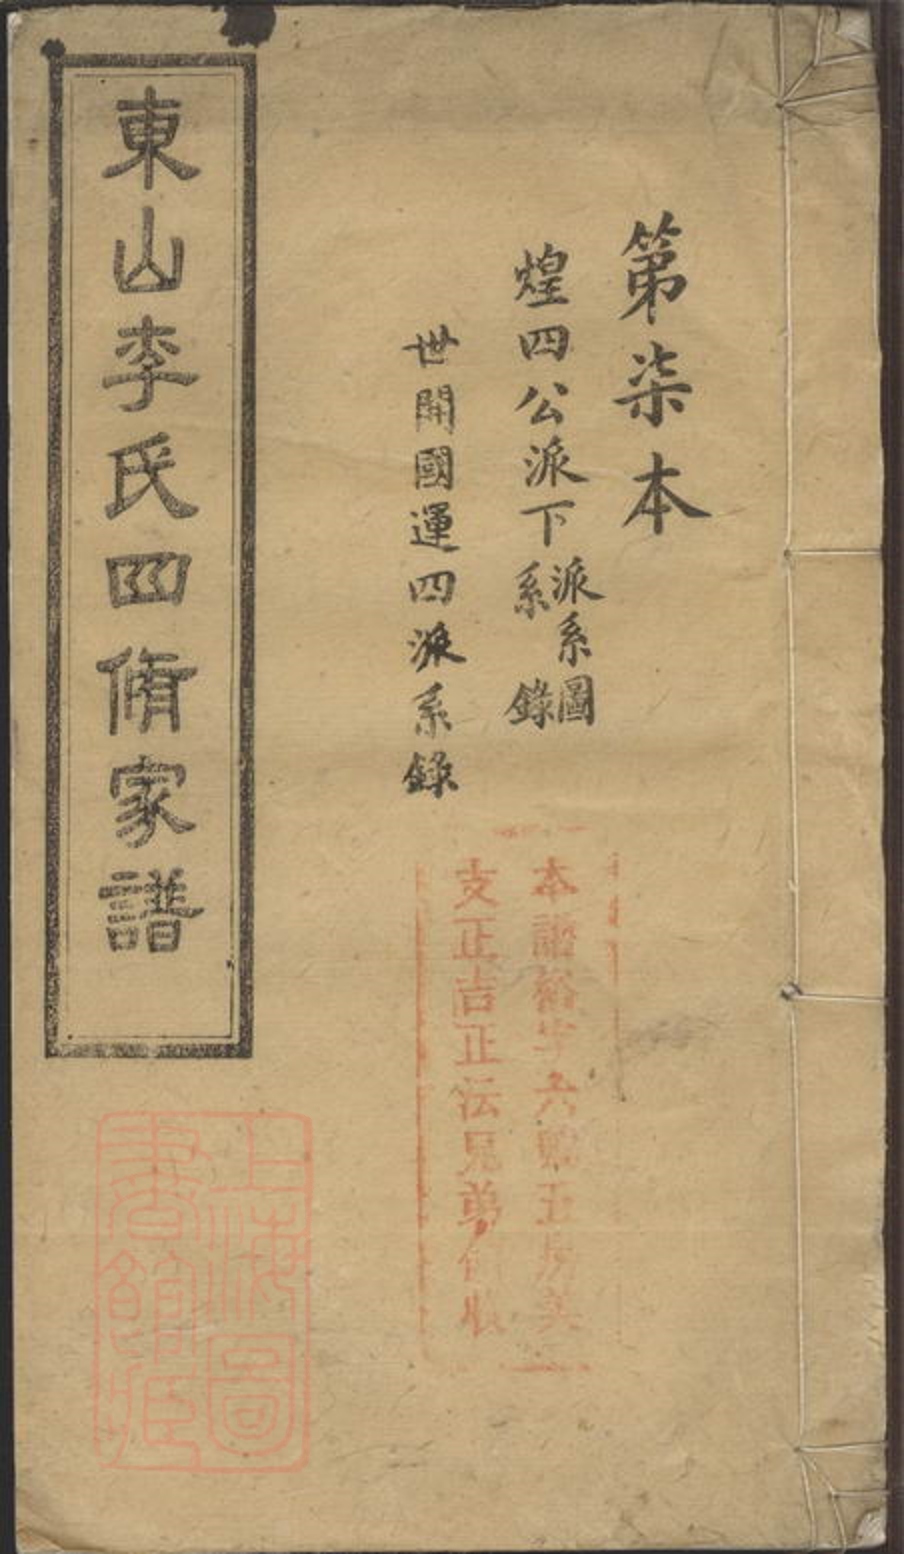 第柒本
煌四公派下派系圖
系錄
世開國運四派系錄
東山李氏四脩家譜
本譜 字六 五房美
支正吉正沄兄弟 收
上海圖
書館藏